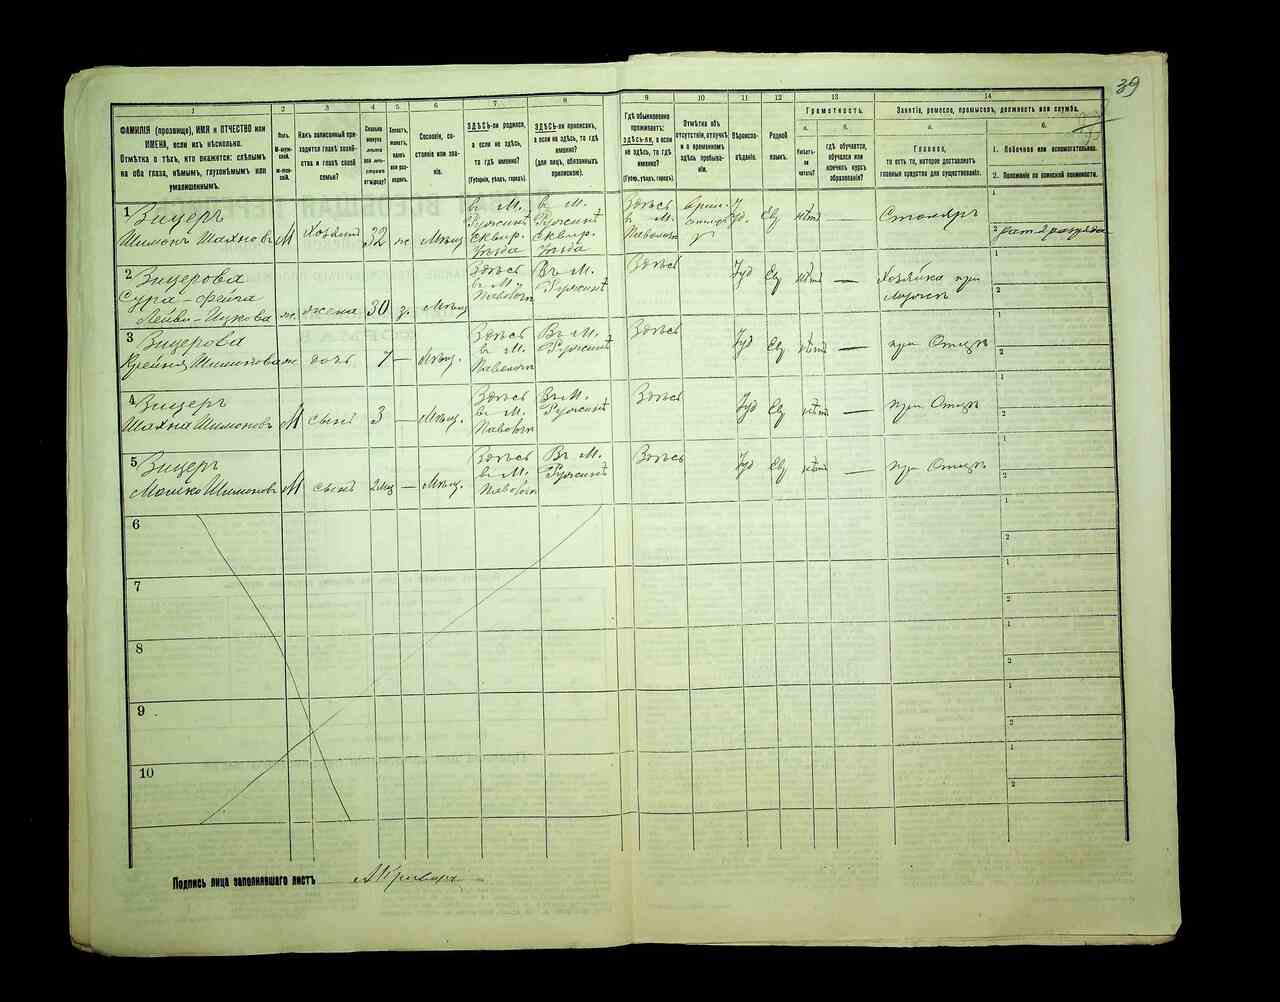 39
1 2 3 4 5 6 7 8 9 10 11 12 13 14
ФАМИЛІЯ (прозвище), ИМЯ и ОТЧЕСТВО или
ИМЕНА, если ихъ нѣсколько.
Отмѣтка о тѣхъ, кто окажется: слѣпымъ
на оба глаза, нѣмымъ, глухонѣмымъ или
умалишеннымъ.
Полъ.
М-мужской.
Ж-женскій.
Какъ записанный приходится
главѣ хозяйства
и главѣ своей
семьи?
Сколько
минуло
лѣтъ
или мѣсяцевъ
отъ роду?
Холостъ,
женатъ,
вдовъ
или разведенъ.
Сословіе, состояніе
или званіе.
ЗДѢСЬ-ли родился,
а если не здѣсь,
то гдѣ именно?
(Губернія, уѣздъ, городъ).
ЗДѢСЬ-ли приписанъ,
а если не здѣсь, то гдѣ
именно?
(для лицъ, обязанныхъ
припискою).
Гдѣ обыкновенно
проживаетъ:
ЗДѢСЬ-ЛИ, а если
не здѣсь, то гдѣ
именно?
(Губер., уѣздъ, городъ).
Отмѣтка объ
отсутствіи, отлучкѣ
и о временномъ
здѣсь пребываніи.
Вѣроисповѣданіе.
Родной
языкъ.
Грамотность.
а.
Умѣетъ-ли
читать?
б.
гдѣ обучается,
обучался или
кончилъ курсъ
образованія?
Занятіе, ремесло, промыселъ, должность или служба.
а.
Главное,
то есть то, которое доставляетъ
главныя средства для существованія.
б.
1. Побочное или вспомогательное.
2. Положеніе по воинской повинности.
1 Вицеръ
Шимонъ Шахновъ М Хозяинъ 32 ж Мѣщ
въ М.
Ружинѣ
Сквир.
Уѣзда
въ М.
Ружинѣ
Сквир.
Уѣзда
Здѣсь
въ М.
Паволочи
Іуд. Ев нѣтъ Столяръ
1
2 рат. 2 разряда
2 Вицерова
Сура-Фейга
Лейви-Ицкова ж. жена 30 з. Мѣщ
Здѣсь
въ М.
Паволочи
Въ М.
Ружинѣ
Здѣсь Іуд Ев нѣтъ — Хозяйка при
мужѣ
1
2
3 Вицерова
Крейня Шимонова ж дочь 7 — Мѣщ.
Здѣсь
въ М.
Паволочи
Въ М.
Ружинѣ
Здѣсь Іуд Ев нѣтъ — при Отцѣ
1
2
4 Вицеръ
Шахна Шимоновъ М сынъ 3 — Мѣщ.
Здѣсь
въ М.
Паволочи
Въ М.
Ружинѣ
Здѣсь Іуд Ев нѣтъ — при Отцѣ
1
2
5 Вицеръ
Мошко Шимоновъ М сынъ 2 мц — Мѣщ.
Здѣсь
въ М.
Паволочи
Въ М.
Ружинѣ
Здѣсь Іуд Ев нѣтъ — при Отцѣ
1
2
6 1
2
7 1
2
8 1
2
9 1
2
10 1
2
Подпись лица заполнявшаго листъ